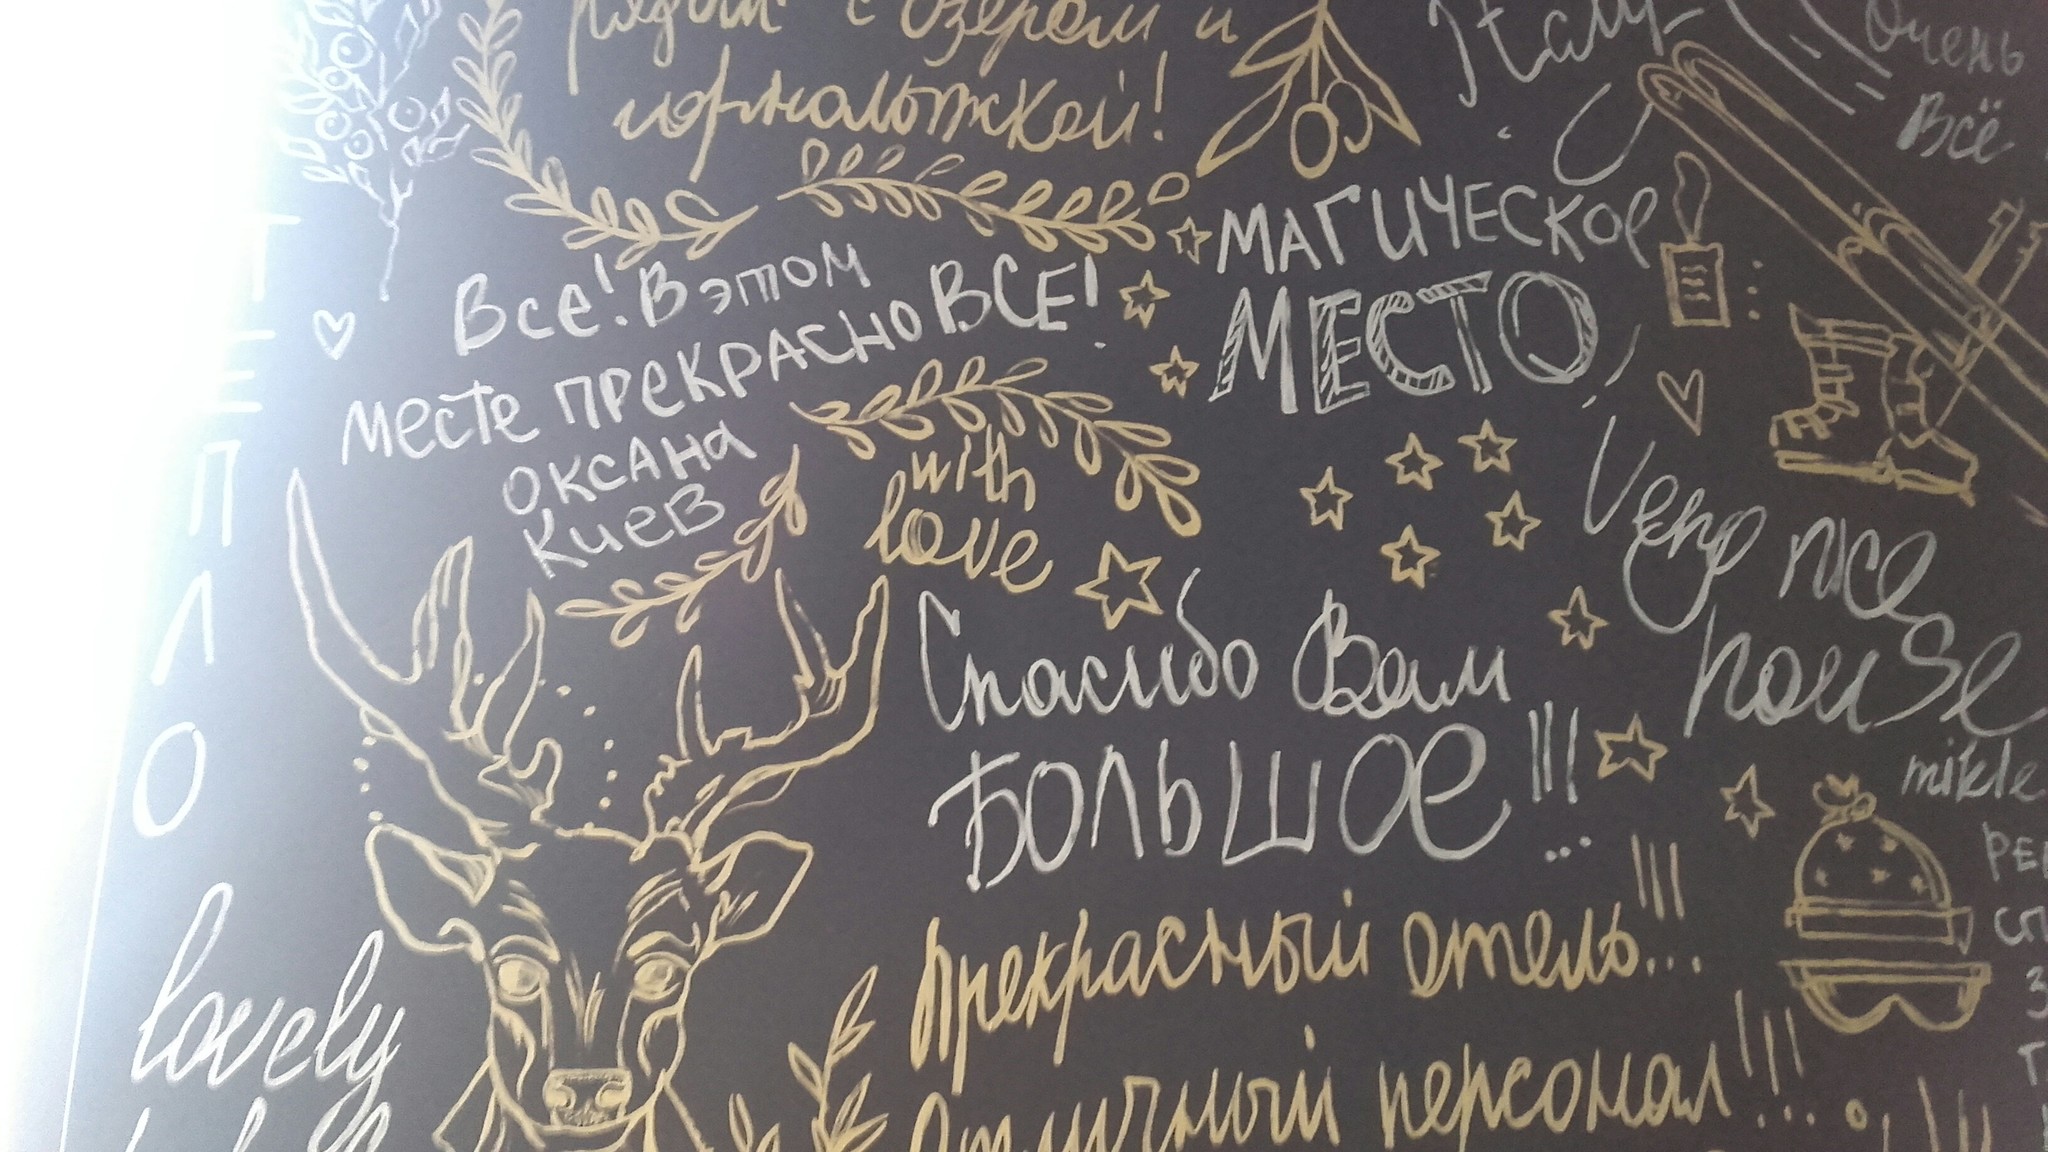 рядом с озером и
горнолыжкой!
Italy
Очень
Всё
ТЕПЛО
Все! В этом
месте ПРЕКРАСНО ВСЕ!
ОКСАНА
Киев
МАГИЧЕСКОЕ
МЕСТО!
with
love
Very nice
house
mikle
Спасибо Вам
БОЛЬШОЕ!!!
Прекрасный отель!!!
Отличный персонал!!!
lovely